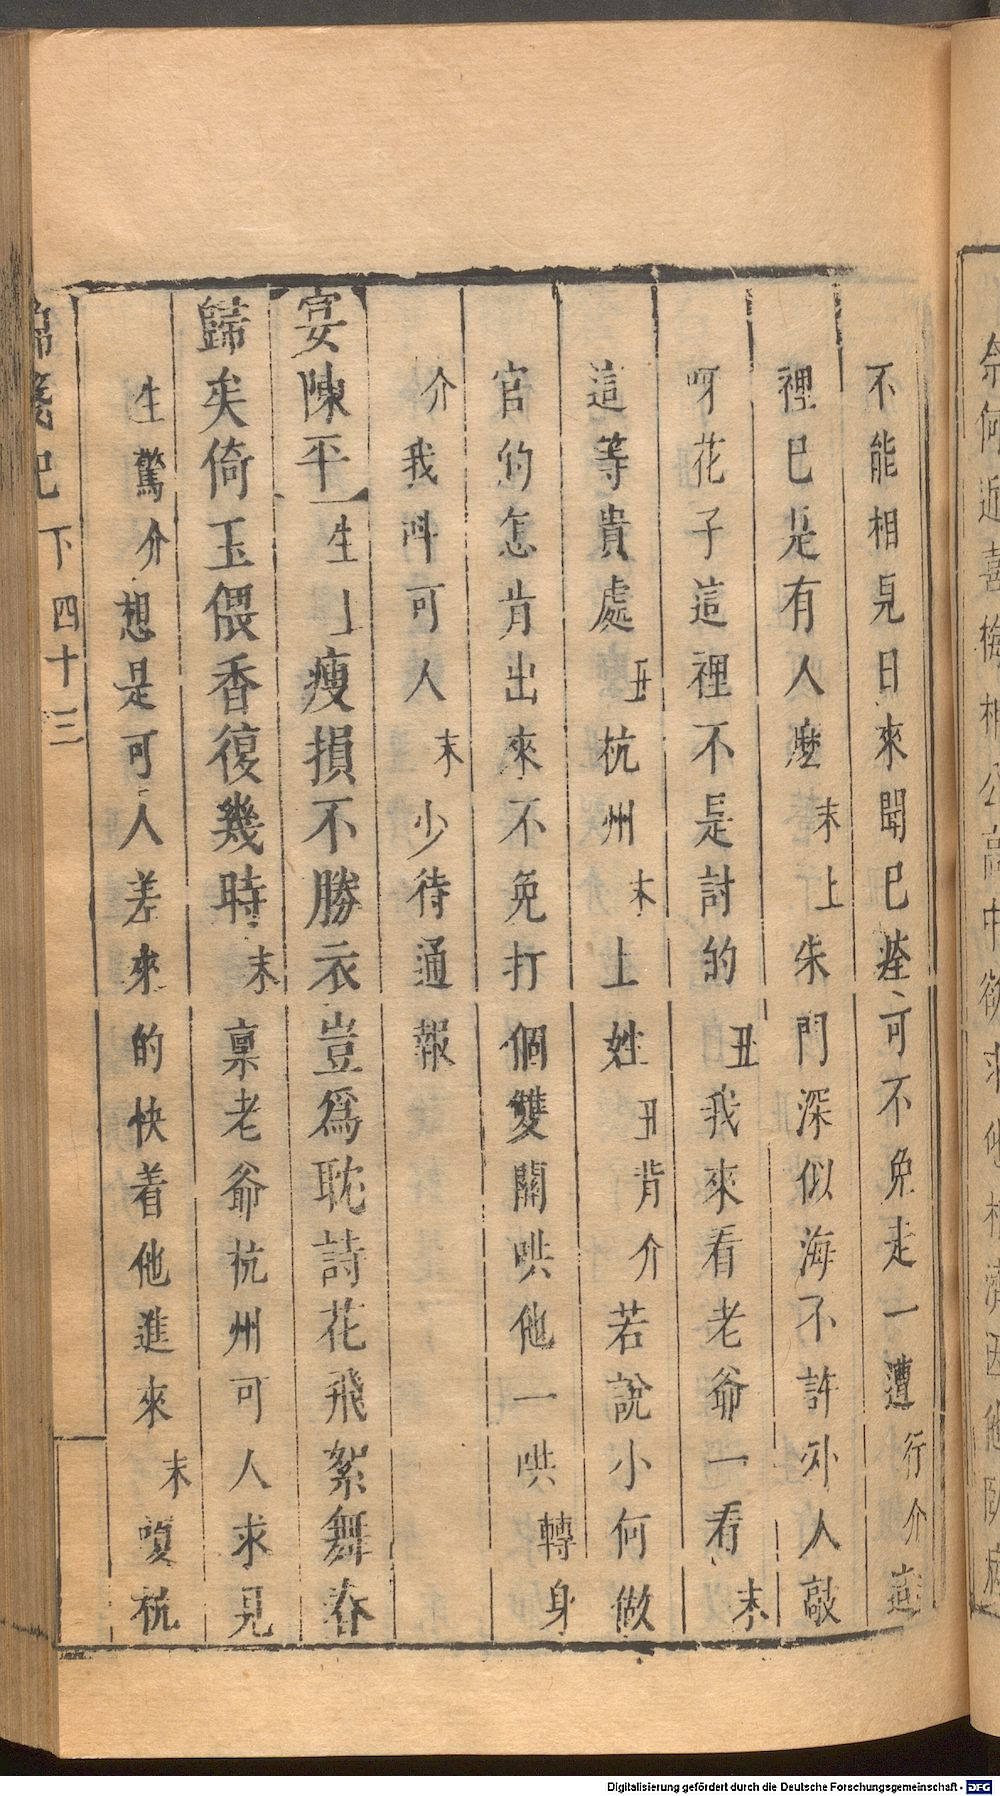 不能相見日來聞已痊可不免走一遭行介這
裡已是有人麽末上朱門深似海不許外人敲
呀花子這裡不是討的丑我來看老爺一看末
這等貴處丑杭州末上姓丑背介若說小何做
官的怎肯出來不免打個雙關哄他一哄轉身
介我叫可人末少待通報
宴陳平生瘦損不勝衣豈爲耽詩花飛絮舞春
歸矣倚玉偎香復幾時末稟老爺杭州可人求見
生驚介想是可人差來的快着他進來末嗄杭
記下 四十三
Digitalisierung gefördert durch die Deutsche Forschungsgemeinschaft - DFG